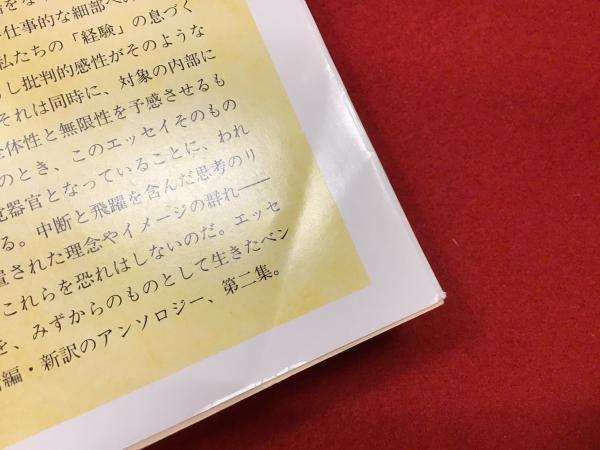 仕事的な細部への
私たちの「経験」の息づく
し批判的感性がそのような
それは同時に、対象の内部に
全体性と無限性を予感させるも
のとき、このエッセイそのもの
覚器官となっていることに、われ
る。中断と飛躍を含んだ思考のリ
置された理念やイメージの群れ──
これらを恐れはしないのだ。エッセ
を、みずからのものとして生きたベン
編・新訳のアンソロジー、第二集。